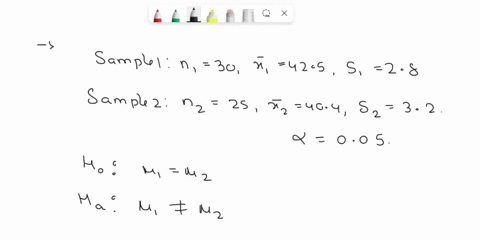 → Sample1: n₁=30, x̄₁=42.5, S₁=2.8
Sample2: n₂=25, x̄₂=40.4, S₂=3.2.
α=0.05.
H₀: μ₁=μ₂
Hₐ: μ₁≠μ₂